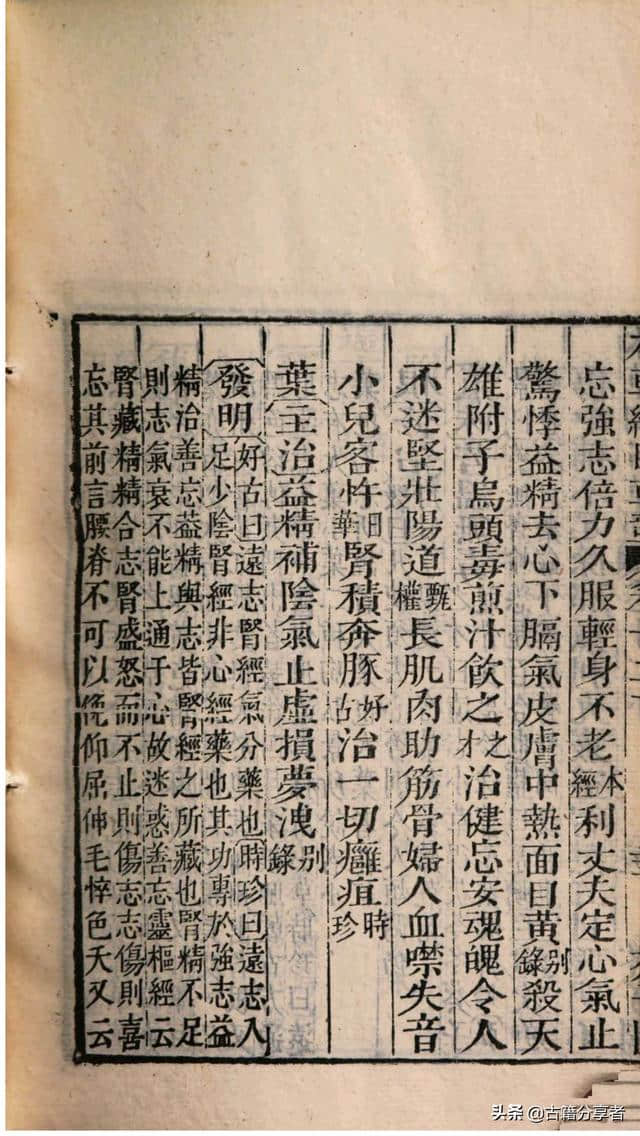 忘強志倍力久服輕身不老本經利丈夫定心氣止
驚悸益精去心下膈氣皮膚中熱面目黄别錄殺天
雄附子烏頭毒煎汁飲之之才治健忘安魂魄令人
不迷堅壯陽道甄權長肌肉助筋骨婦人血噤失音
小兒客忤日華腎積奔豚好古治一切癰疽時珍
葉主治益精補陰氣止虛損夢洩别錄
發明好古曰遠志腎經氣分藥也時珍曰遠志入
足少陰腎經非心經藥也其功專於強志益
精治善忘葢精與志皆腎經之所藏也腎精不足
則志氣衰不能上通于心故迷惑善忘靈樞經云
腎藏精精合志腎盛怒而不止則傷志志傷則喜
忘其前言腰脊不可以俛仰屈伸毛悴色夭又云
头条 @古籍分享者